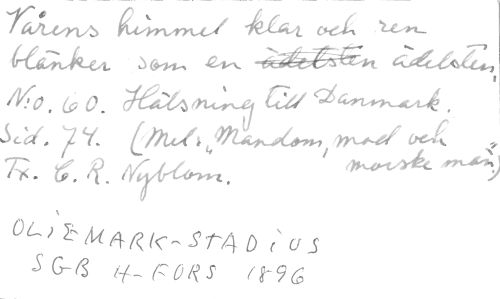 Vårens himmel klar och ren
blänker som en ädelsten ädelsten.
N:o. 60. Hälsning till Danmark.
Sid. 74. (Mel: "Mandom, mod och
morske män")
Tx. C. R. Nyblom.
OLIEMARK-STADIUS
SGB H-FORS 1896